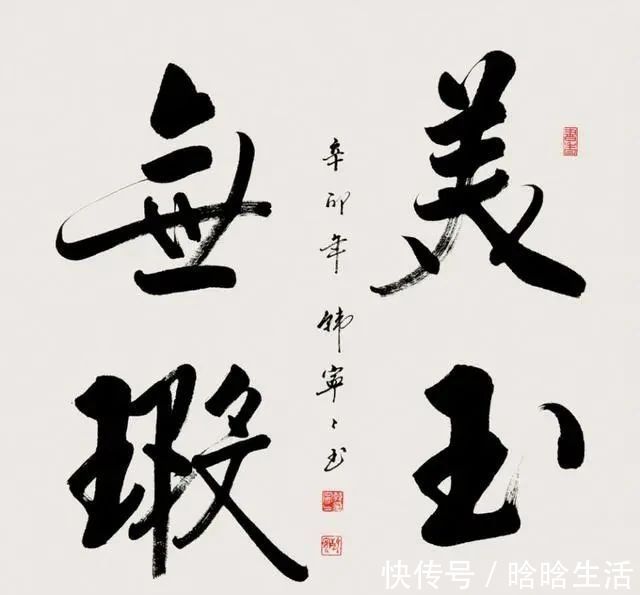 美玉
無瑕
辛卯年韩寧〻书
快传号 / 晗晗生活